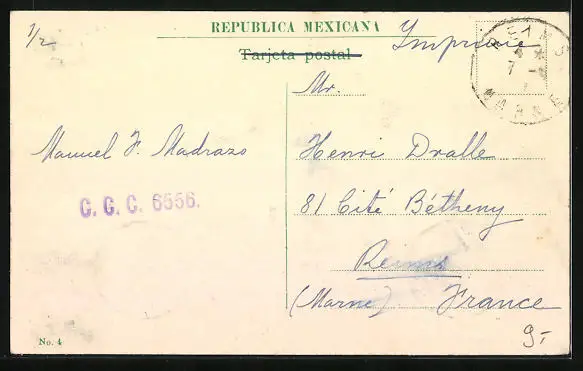 1/2
REPUBLICA MEXICANA
Tarjeta postal
Imprimé
REIMS
7
MARNE
Mr.
Manuel F. Madrazo
Henri Dralle
C. G. C. 6556.
81 Cité Bétheny
Reims
(Marne) France
9.-
No. 4